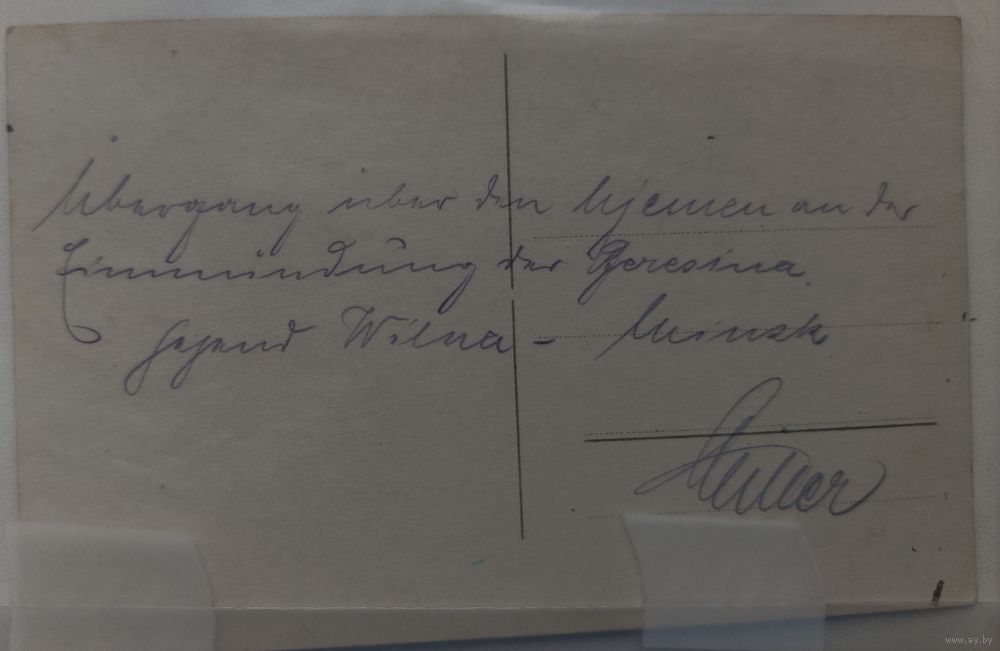 Übergang über den Njemen an der
Einmündung der Beresina.
Gegend Wilna - Minsk
www.ay.by